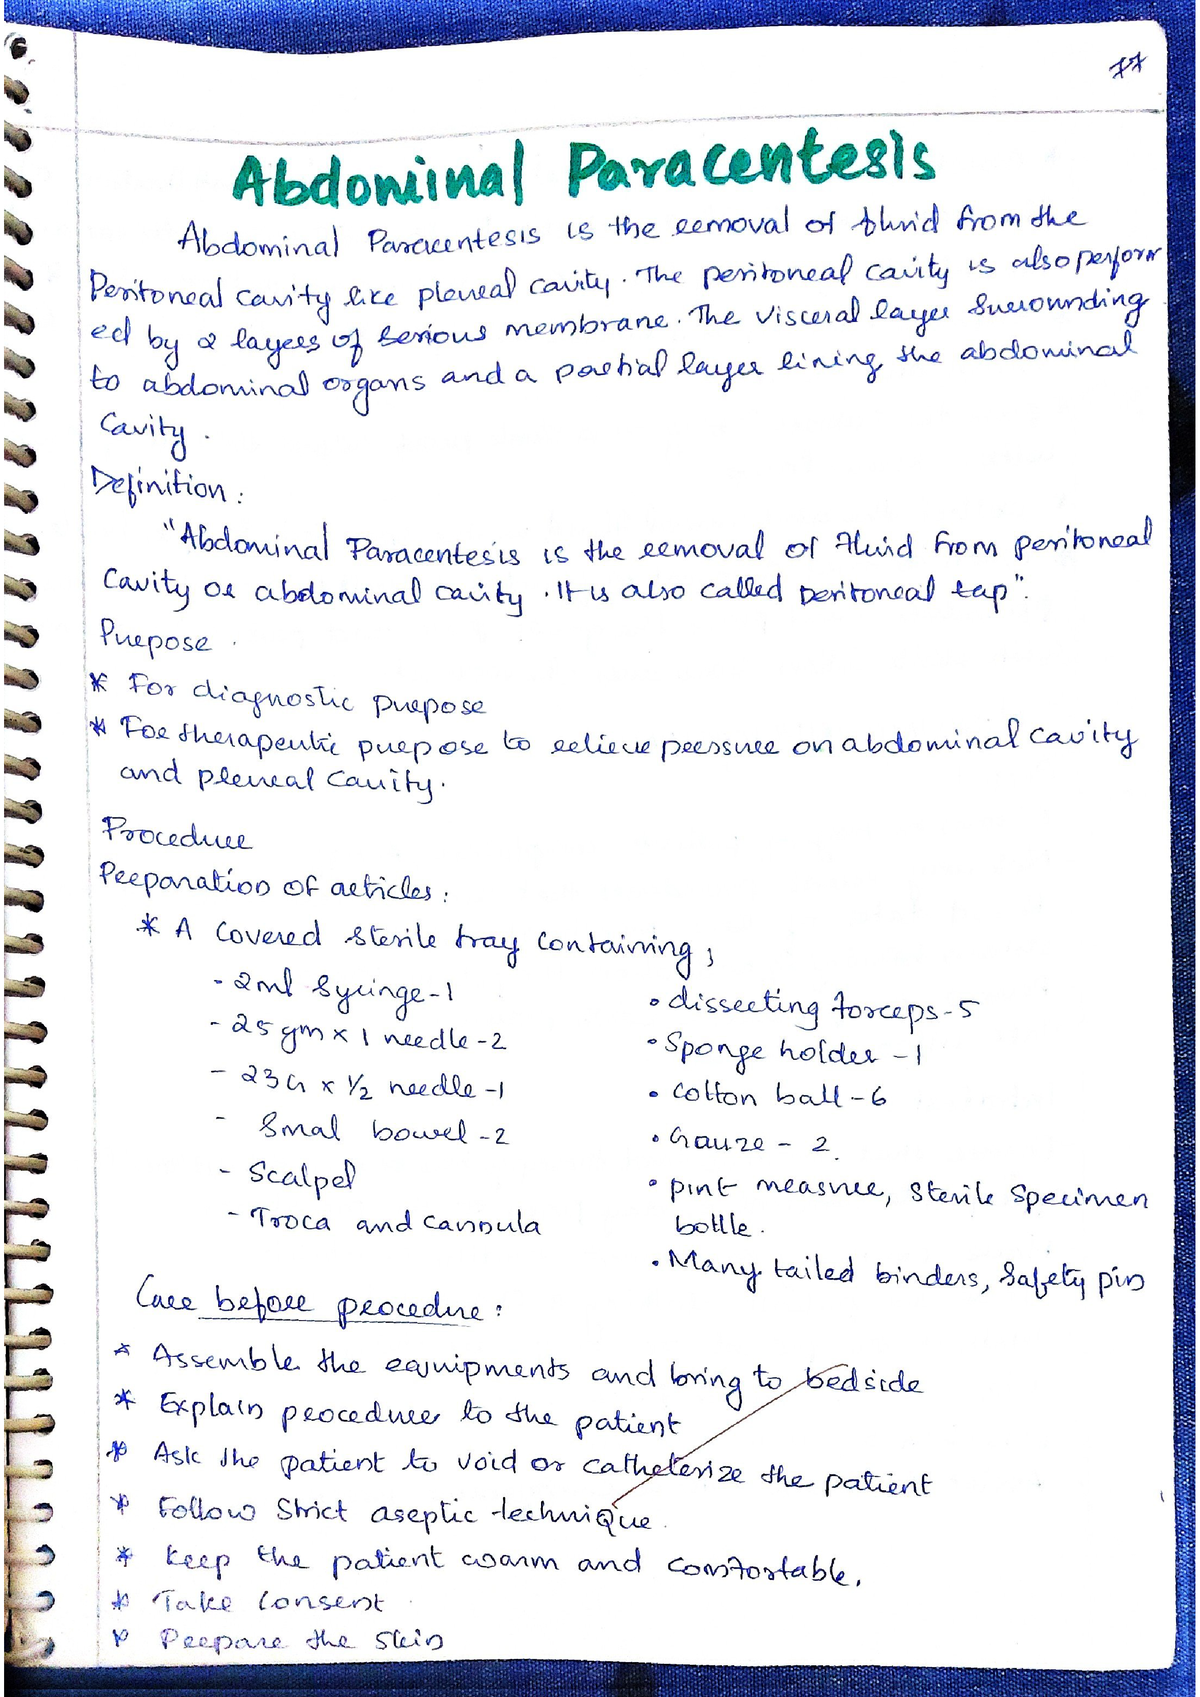 77
Abdominal Paracentesis
Abdominal Paracentesis is the removal of fluid from the
Peritoneal cavity like pleural cavity. The peritoneal cavity is also perform
ed by 2 layers of serious membrane. The visceral layer surrounding
to abdominal organs and a partial layer lining, the abdominal
Cavity.
Definition:
"Abdominal Paracentesis is the removal of fluid from peritoneal
Cavity or abdominal cavity. It is also called peritoneal tap".
Purpose.
* For diagnostic purpose
* For therapeutic purpose to relieve pressure on abdominal cavity
and pleural cavity.
Procedure
Preparation of articles:
* A Covered sterile tray containing;
- 2ml syringe-1
- 25 gm x 1 needle-2
- 23G x ½ needle-1
- Smal bowel-2
- Scalpel
- Troca and cannula
• dissecting forceps-5
• Sponge holder-1
• cotton ball-6
• Gauze - 2.
• pint measure, sterile specimen
bottle.
• Many tailed binders, safety pin
Care before procedure:
* Assemble the equipments and bring to bedside
* Explain procedure to the patient
* Ask the patient to void or catheterize the patient
* Follow strict aseptic technique.
* Keep the patient warm and comfortable.
* Take consent
* Prepare the skin